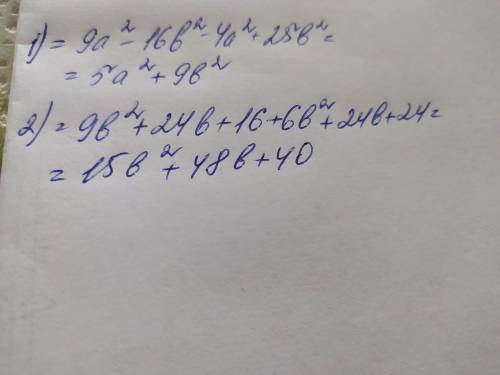 1) = 9a² - 16b² - 4a² + 25b² =
= 5a² + 9b²
2) = 9b² + 24b + 16 + 6b² + 24b + 24 =
= 15b² + 48b + 40